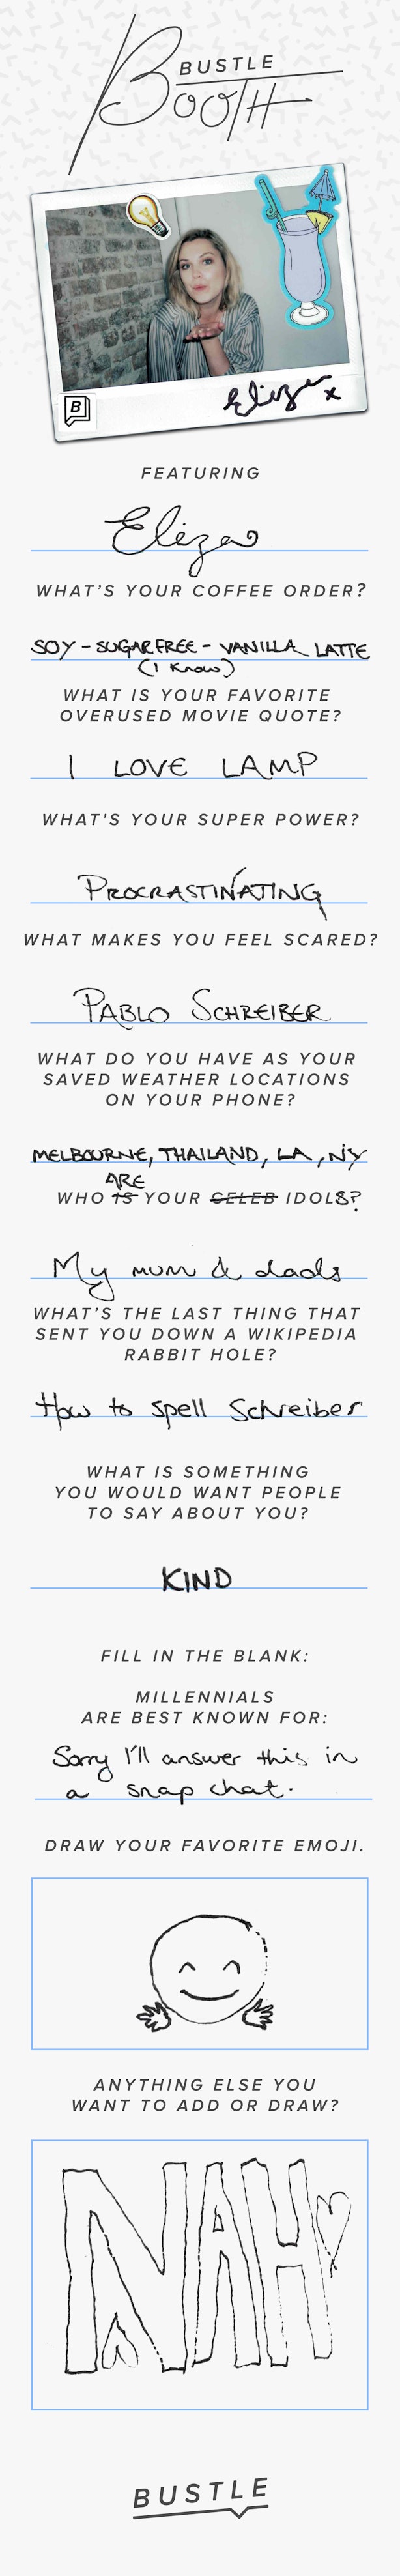 BUSTLE
BOOTH
Eliza x
B
FEATURING
Eliza
WHAT'S YOUR COFFEE ORDER?
SOY - SUGARFREE - VANILLA LATTE
(I know)
WHAT IS YOUR FAVORITE
OVERUSED MOVIE QUOTE?
I LOVE LAMP
WHAT'S YOUR SUPER POWER?
PROCRASTINATING
WHAT MAKES YOU FEEL SCARED?
PABLO SCHREIBER
WHAT DO YOU HAVE AS YOUR
SAVED WEATHER LOCATIONS
ON YOUR PHONE?
MELBOURNE, THAILAND, LA, NY
ARE
WHO IS YOUR CELEB IDOLS?
My mum & dads
WHAT'S THE LAST THING THAT
SENT YOU DOWN A WIKIPEDIA
RABBIT HOLE?
How to spell Schreiber
WHAT IS SOMETHING
YOU WOULD WANT PEOPLE
TO SAY ABOUT YOU?
KIND
FILL IN THE BLANK:
MILLENNIALS
ARE BEST KNOWN FOR:
Sorry I'll answer this in
a snap chat.
DRAW YOUR FAVORITE EMOJI.
ANYTHING ELSE YOU
WANT TO ADD OR DRAW?
NAH
BUSTLE